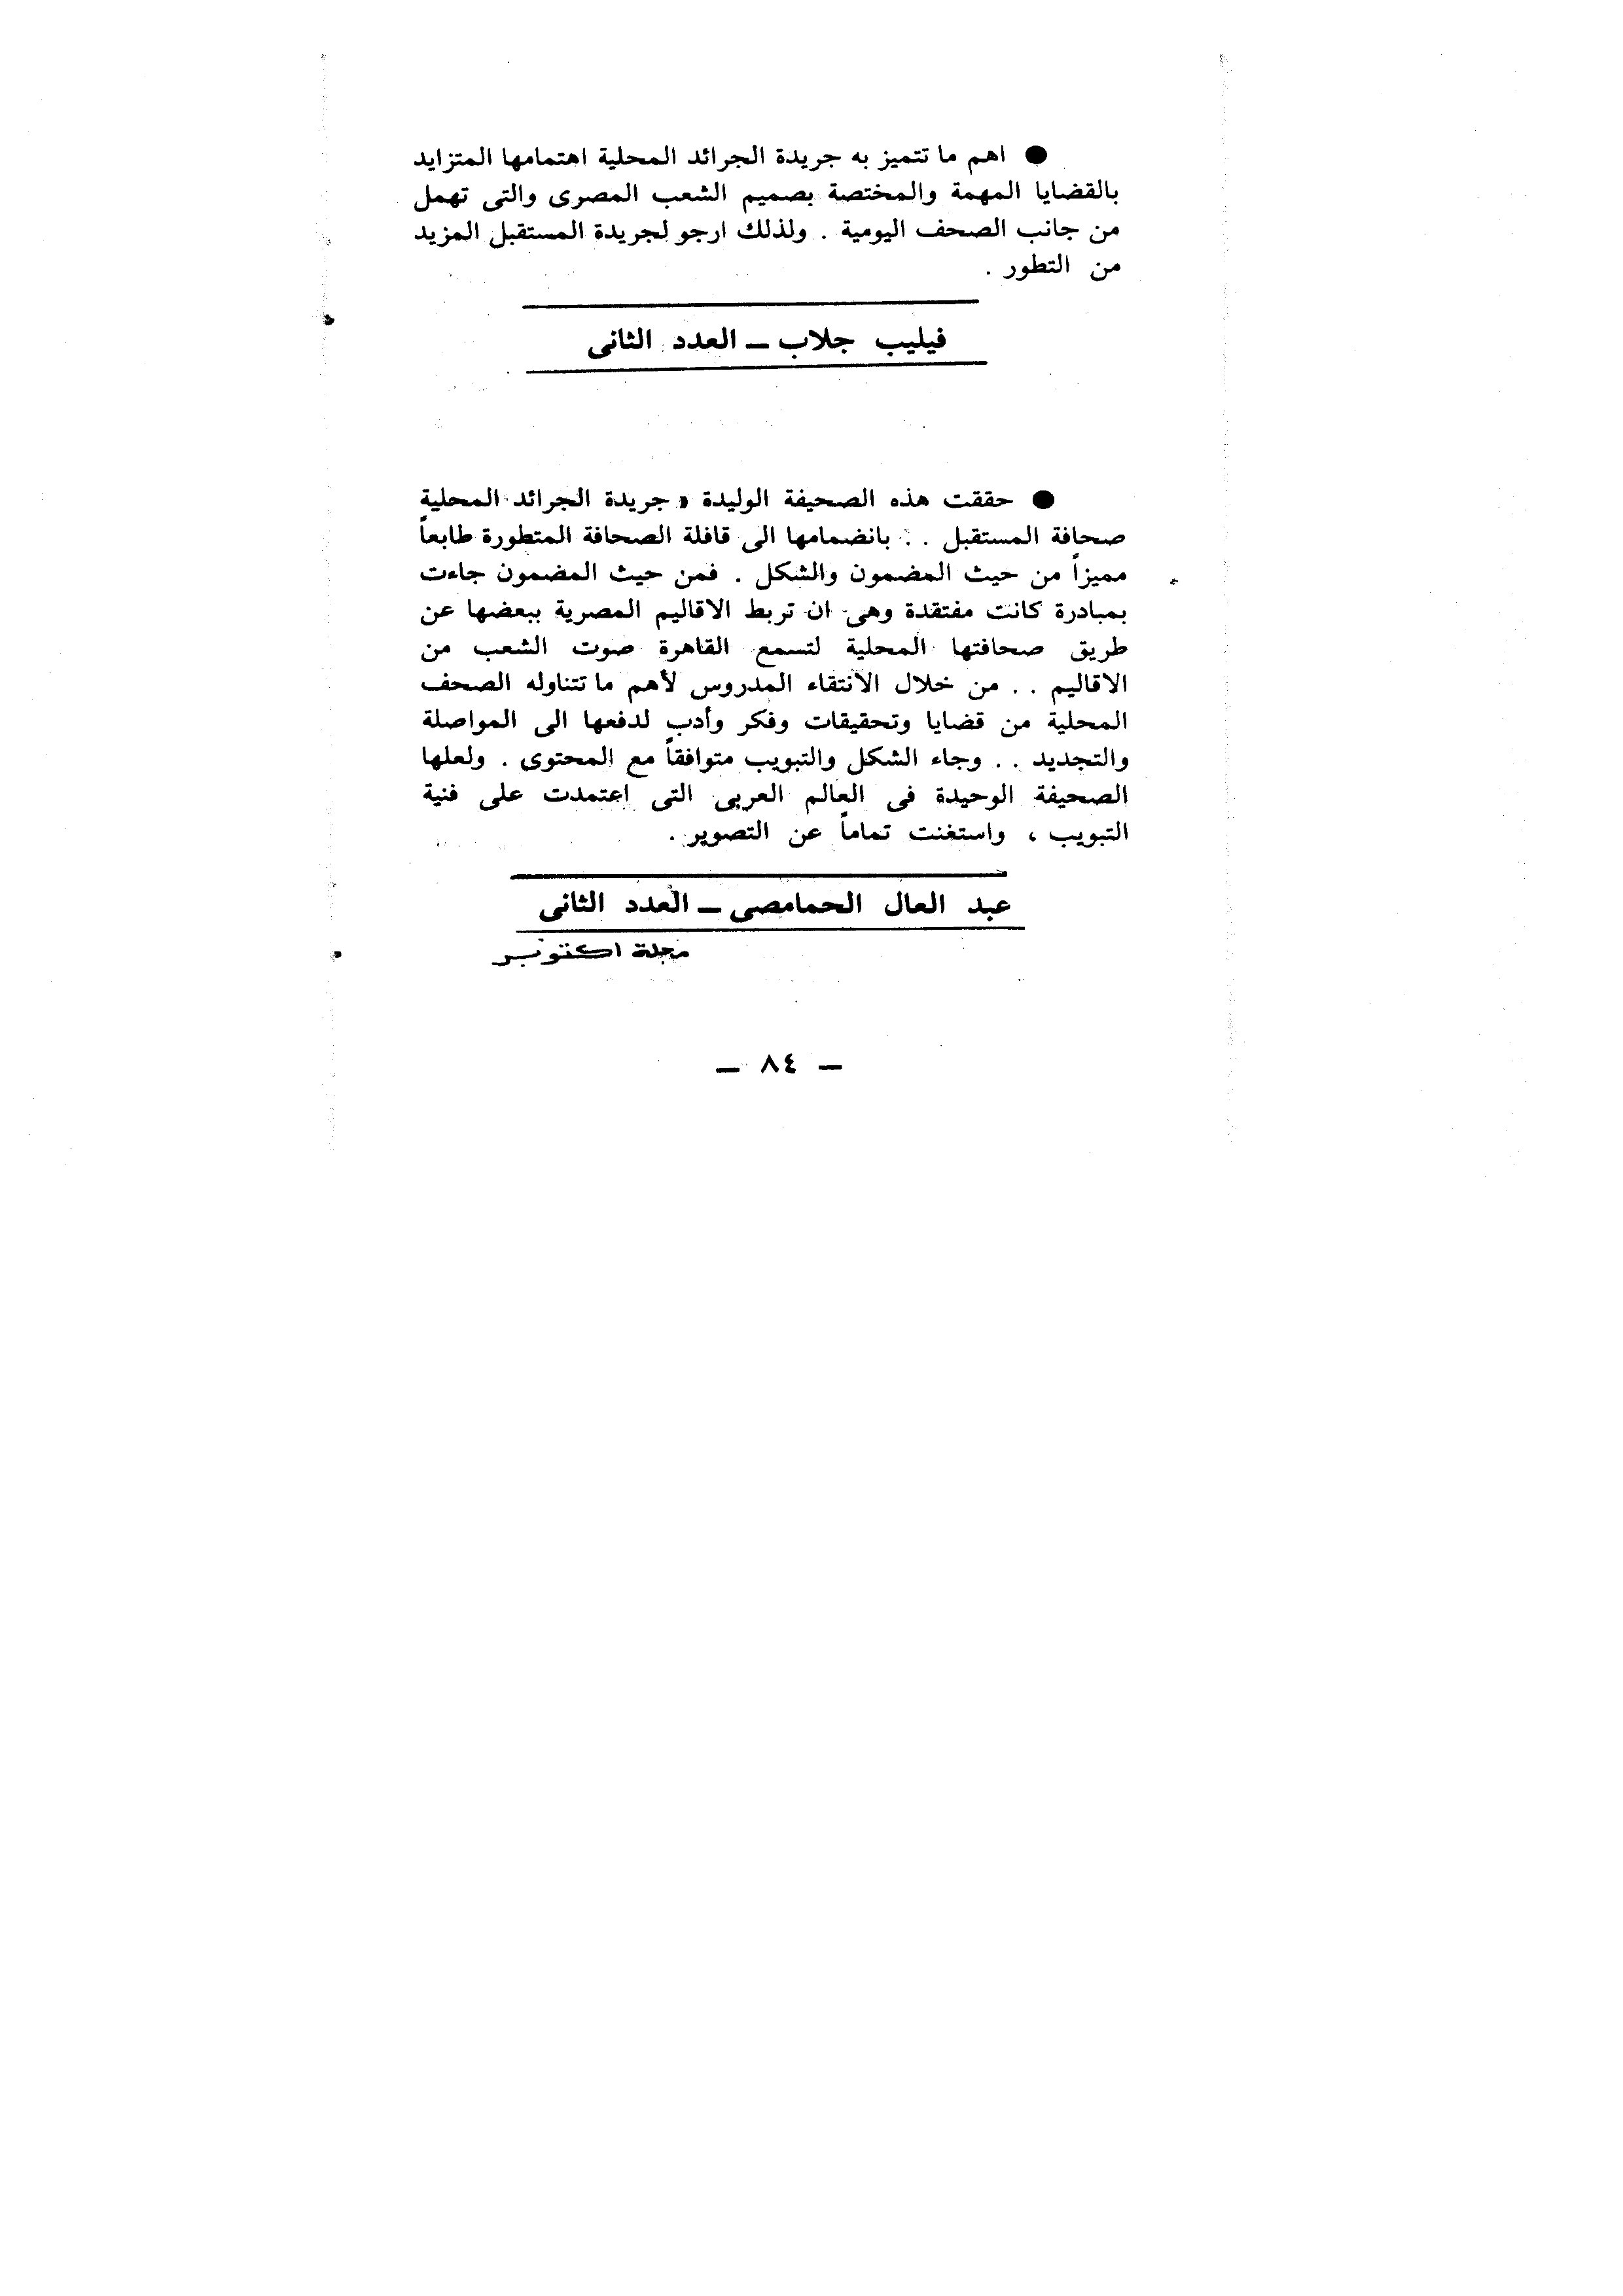 ● اهم ما تتميز به جريدة الجرائد المحلية اهتمامها المتزايد
بالقضايا المهمة والمختصة بصميم الشعب المصرى والتى تهمل
من جانب الصحف اليومية . ولذلك ارجو لجريدة المستقبل المزيد
من التطور .
فيليب جلاب ــ العدد الثانى
● حققت هذه الصحيفة الوليدة « جريدة الجرائد المحلية
صحافة المستقبل . . بانضمامها الى قافلة الصحافة المتطورة طابعاً
مميزاً من حيث المضمون والشكل . فمن حيث المضمون جاءت
بمبادرة كانت مفتقدة وهى ان تربط الاقاليم المصرية ببعضها عن
طريق صحافتها المحلية لتسمع القاهرة صوت الشعب من
الاقاليم . . من خلال الانتقاء المدروس لأهم ما تتناوله الصحف
المحلية من قضايا وتحقيقات وفكر وأدب لدفعها الى المواصلة
والتجديد . . وجاء الشكل والتبويب متوافقاً مع المحتوى . ولعلها
الصحيفة الوحيدة فى العالم العربى التى اعتمدت على فنية
التبويب ، واستغنت تماماً عن التصوير .
عبد العال الحمامصى ــ العدد الثانى
مجلة اكتوبر
ــ ٨٤ ــ